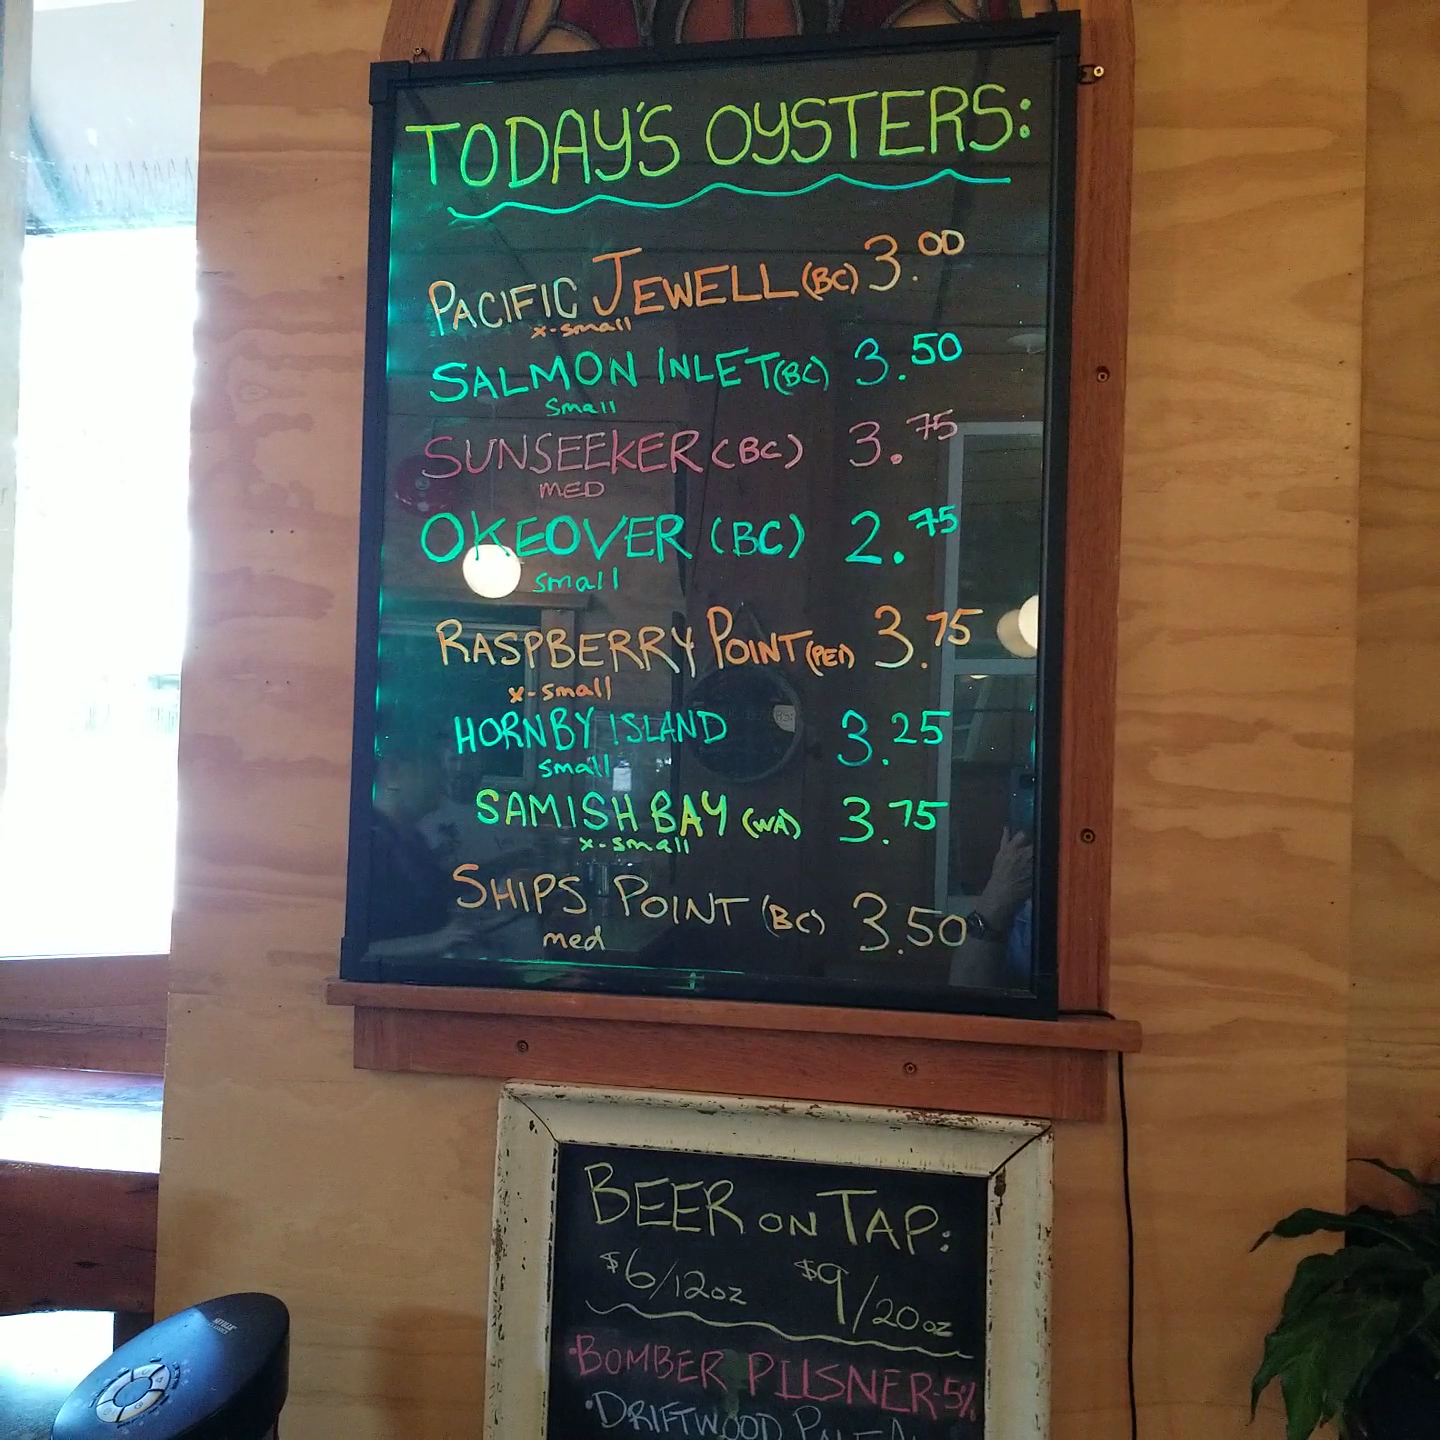 TODAY'S OYSTERS:
PACIFIC JEWELL (BC) 3.00
x-small
SALMON INLET (BC) 3.50
small
SUNSEEKER (BC) 3.75
MED
OKEOVER (BC) 2.75
small
RASPBERRY POINT (PEI) 3.75
x-small
HORNBY ISLAND 3.25
small
SAMISH BAY (WA) 3.75
x-small
SHIPS POINT (BC) 3.50
med
BEER ON TAP:
$6/12oz $9/20oz
•BOMBER PILSNER-5%
•DRIFTWOOD